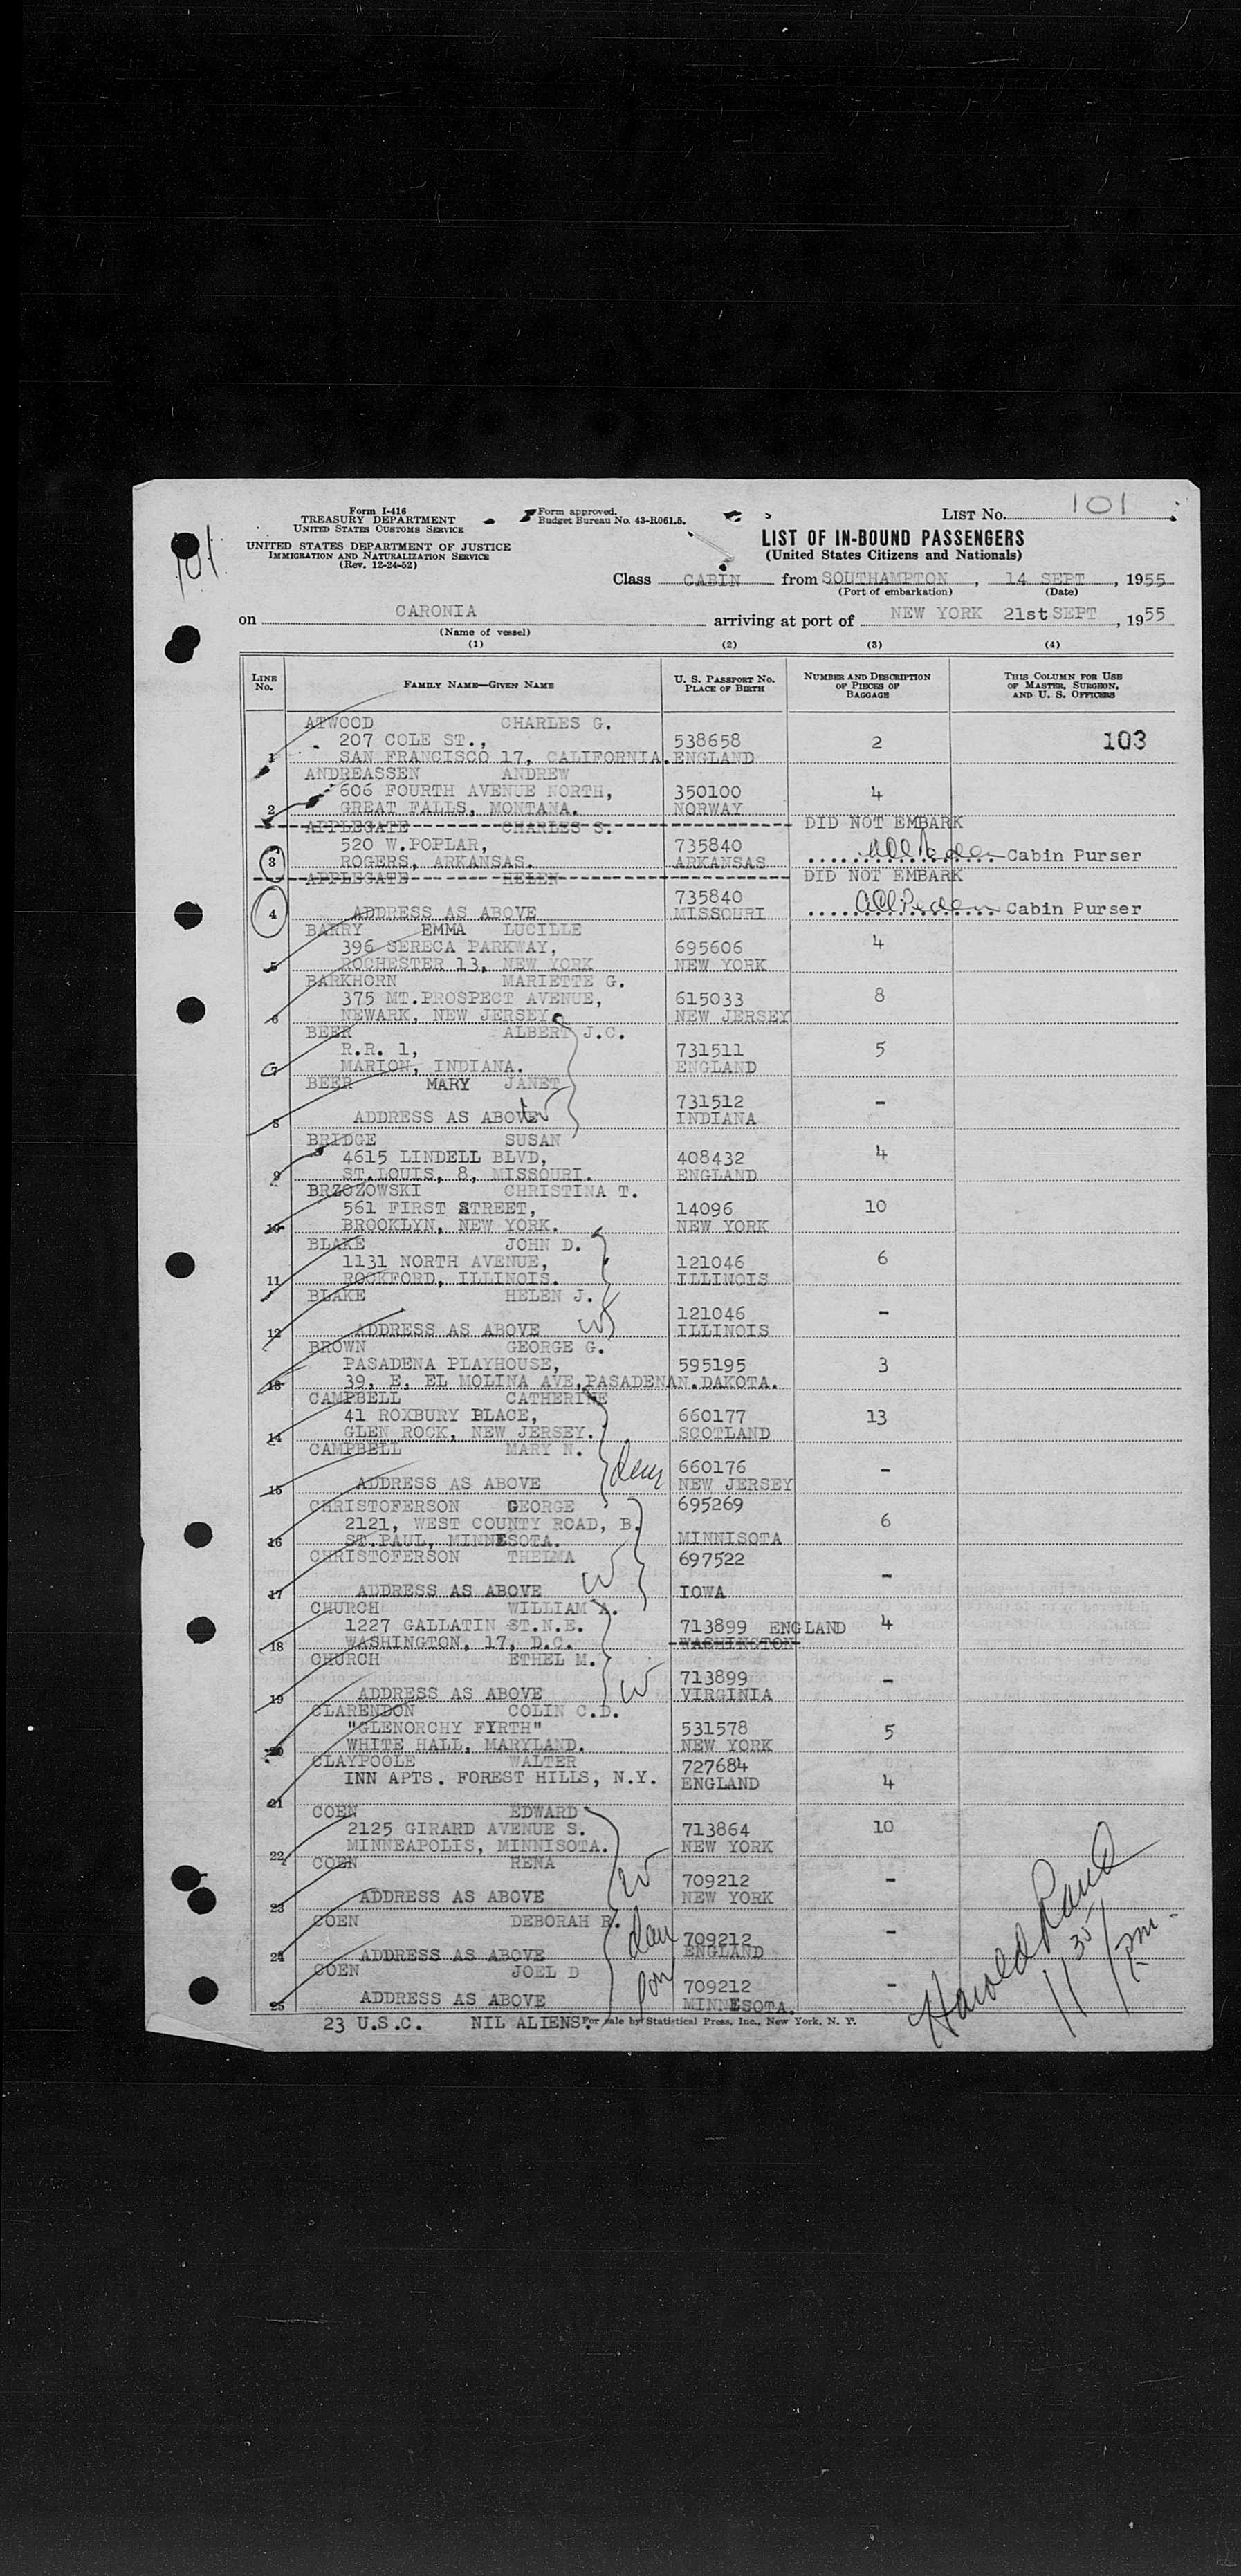 101
Form I-416
TREASURY DEPARTMENT
UNITED STATES CUSTOMS SERVICE
UNITED STATES DEPARTMENT OF JUSTICE
IMMIGRATION AND NATURALIZATION SERVICE
(Rev. 12-24-52)
Form approved.
Budget Bureau No. 43-R061.5.
LIST No. 101
LIST OF IN-BOUND PASSENGERS
(United States Citizens and Nationals)
Class CABIN from SOUTHAMPTON, 14 SEPT, 1955
(Port of embarkation) (Date)
on CARONIA arriving at port of NEW YORK 21st SEPT, 1955
(Name of vessel)
(1) (2) (3) (4)
LINE No. FAMILY NAME—GIVEN NAME U. S. PASSPORT No. PLACE OF BIRTH NUMBER AND DESCRIPTION OF PIECES OF BAGGAGE THIS COLUMN FOR USE OF MASTER, SURGEON, AND U. S. OFFICERS
ATWOOD CHARLES G.
207 COLE ST., 538658 2 103
1 SAN FRANCISCO 17, CALIFORNIA. ENGLAND
ANDREASSEN ANDREW
606 FOURTH AVENUE NORTH, 350100 4
2 GREAT FALLS, MONTANA. NORWAY
APPLEGATE CHARLES S. DID NOT EMBARK
520 W.POPLAR, 735840
3 ROGERS, ARKANSAS. ARKANSAS Cabin Purser
APPLEGATE HELEN DID NOT EMBARK
735840
4 ADDRESS AS ABOVE MISSOURI Cabin Purser
BARRY EMMA LUCILLE
396 SERECA PARKWAY, 695606 4
5 ROCHESTER 13, NEW YORK NEW YORK
BARKHORN MARIETTE G.
375 MT.PROSPECT AVENUE, 615033 8
6 NEWARK, NEW JERSEY. NEW JERSEY
BEER ALBERT J.C.
R.R. 1, 731511 5
7 MARION, INDIANA. ENGLAND
BEER MARY JANET
731512 -
8 ADDRESS AS ABOVE W INDIANA
BRIDGE SUSAN
4615 LINDELL BLVD, 408432 4
9 ST.LOUIS, 8, MISSOURI. ENGLAND
BRZOZOWSKI CHRISTINA T.
561 FIRST STREET, 14096 10
10 BROOKLYN, NEW YORK. NEW YORK
BLAKE JOHN D.
1131 NORTH AVENUE, 121046 6
11 ROCKFORD, ILLINOIS. ILLINOIS
BLAKE HELEN J.
121046 -
12 ADDRESS AS ABOVE W ILLINOIS
BROWN GEORGE G.
PASADENA PLAYHOUSE, 595195 3
13 39, E, EL MOLINA AVE,PASADENA N.DAKOTA.
CAMPBELL CATHERINE
41 ROXBURY BLACE, 660177 13
14 GLEN ROCK, NEW JERSEY. SCOTLAND
CAMPBELL MARY N.
dau 660176 -
15 ADDRESS AS ABOVE NEW JERSEY
CHRISTOFERSON GEORGE 695269
2121, WEST COUNTY ROAD, B. 6
16 ST.PAUL, MINNESOTA. MINNISOTA
CHRISTOFERSON THELMA 697522
-
17 ADDRESS AS ABOVE W IOWA
CHURCH WILLIAM A.
1227 GALLATIN ST.N.E. 713899 ENGLAND 4
18 WASHINGTON, 17, D.C. WASHINGTON
CHURCH ETHEL M.
713899 -
19 ADDRESS AS ABOVE W VIRGINIA
CLARENDON COLIN C.D.
"GLENORCHY FIRTH" 531578 5
20 WHITE HALL, MARYLAND. NEW YORK
CLAYPOOLE WALTER 727684
INN APTS. FOREST HILLS, N.Y. ENGLAND 4
21
COEN EDWARD
2125 GIRARD AVENUE S. 713864 10
22 MINNEAPOLIS, MINNISOTA. NEW YORK
COEN RENA
W 709212 -
23 ADDRESS AS ABOVE NEW YORK
COEN DEBORAH R.
dau 709212 -
24 ADDRESS AS ABOVE ENGLAND
COEN JOEL D
709212 -
25 ADDRESS AS ABOVE MINNESOTA.
23 U.S.C. NIL ALIENS. For sale by Statistical Press, Inc., New York, N. Y.
Harold
11 35 pm